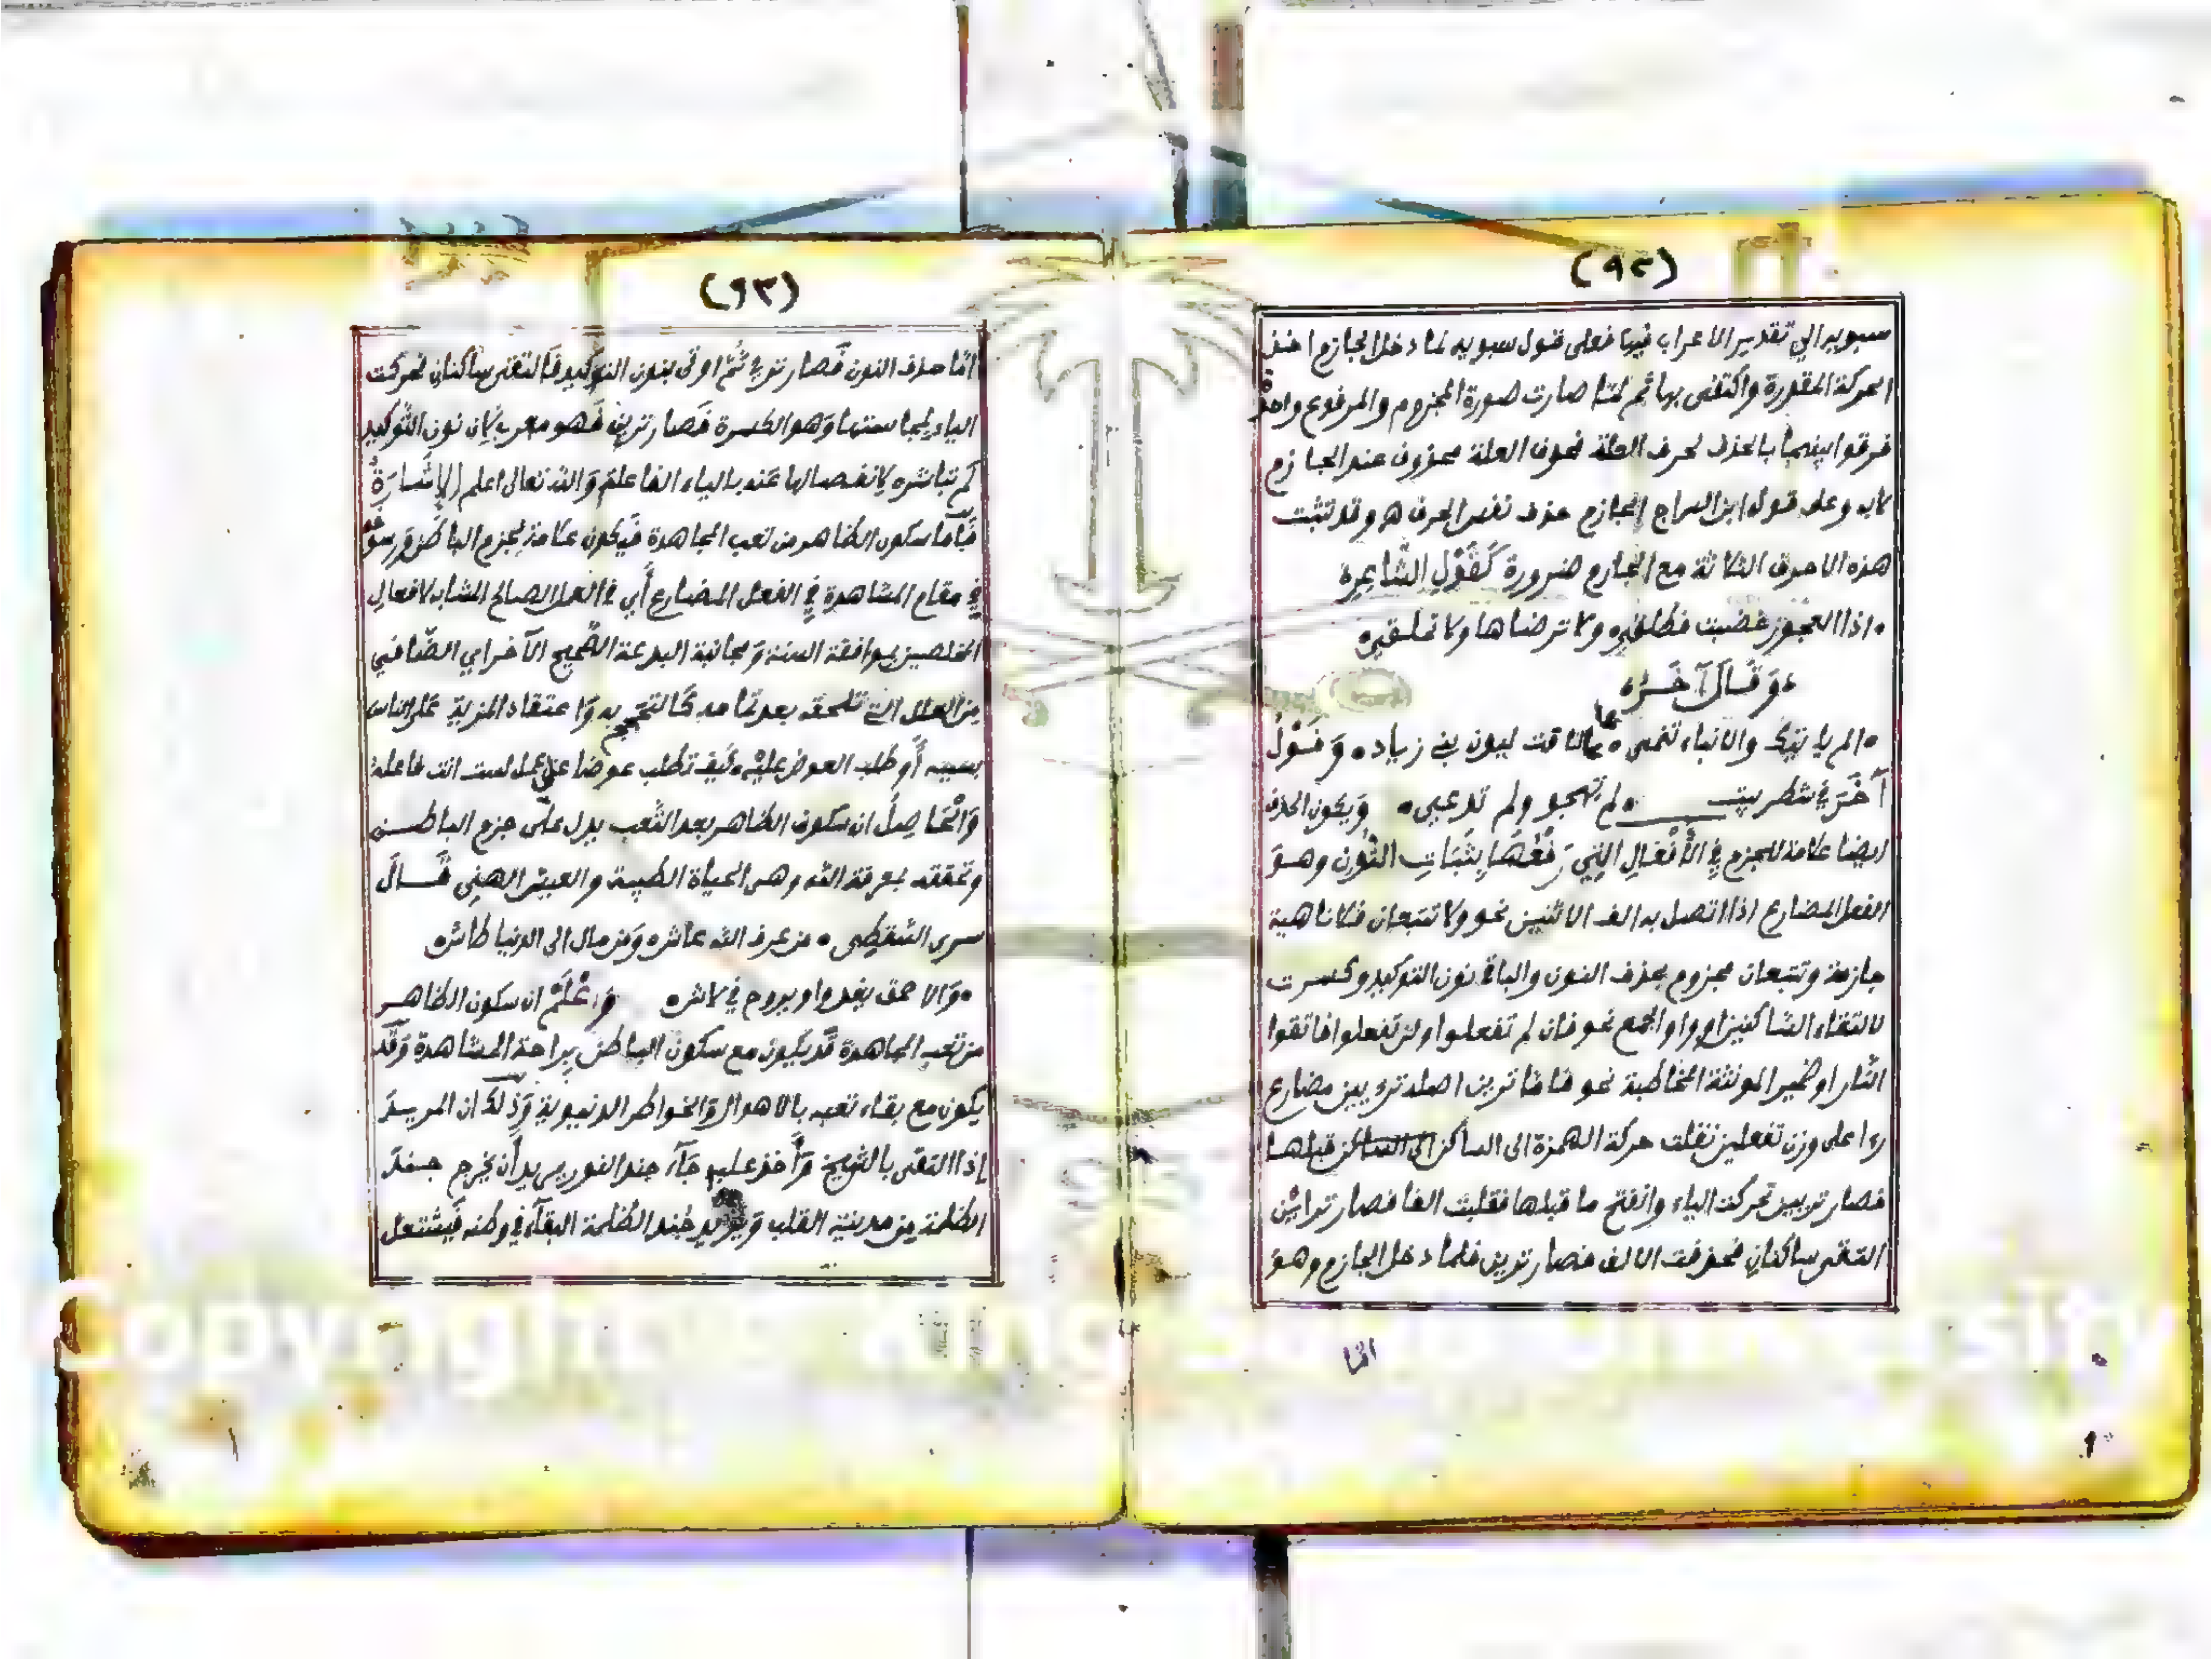 (٩٢)
سيبويه الي تقدير الاعراب فيها فعلى قول سيبويه لما دخل الجازم احذف
الحركة المقدرة واكتفى بها ثم لمّا صارت صورة المجزوم والمرفوع واحدة
فرقوا بينهما بالحذف لحرف العلة فحرف العلة محذوف عند الجازم
لا به وعلى قول ابن السراج الجازم حذف نفس الحرف ه وقد تثبت
هذه الاحرف الثلاثة مع الجازم ضرورة كَقَوْلِ الشَّاعِرِ
اذا العجوز غضبت فطلق ولا ترضاها ولا تملق
وَقَالَ آخَرُ
الم ياتيك والانباء تنمى بما لاقت لبون بني زياد وَقَوْلُ
آخَرَ في شطر بيت لم تهجو ولم تدعي وَيكون الحذف
ايضا علامة للجزم في الْأَفْعَالِ الَّتِي رَفْعُهَا بِثَبَاتِ النُّونِ وهو
الفعل المضارع اذا اتصل به الف الاثنين نحو ولا تتبعان فلا ناهية
جازمة وتتبعان مجزوم بحذف النون والباقي نون التوكيد وكسرت
لالتقاء الساكنين او واو الجمع نحو فان لم تفعلوا ولن تفعلوا فاتقوا
النّار او ضمير المونثة المخاطبة نحو فاما ترين اصله ترءيين مضارع
رءا على وزن تفعلين نقلت حركة الهمزة الى الساكن الى الساكن قبلها
فصار تريين تحركت الياء وانفتح ما قبلها فقلبت الفا فصار تراين
التقى ساكنان فحذفت الالف فصار ترين فلما دخل الجازم وهو
امّا
(٩٣)
امّا حذف النون فَصار تري ثُمّ اوتى بنون التوكيد فَالتقى ساكنان فحركت
الياء لمجانستها وَهو الكسرة فَصار ترين فَهو معرب لان نون التَّوكيد
لم تباشره لانفصالها عنه بالياء الفاعلة وَالله تعالى اعلم الإِشَارَةُ
فَأَما سكون الظاهر من تعب المجاهدة فَيكون علامة لجزم الباطن وَرسوخه
في مقام المشاهدة في الفعل المضارع أَي في العمل الصالح المشابه لافعال
المخلصين بموافقة السنة وَمجانبة البدعة الصَّحيح الآخر اي الصَّافي
من العلل التي تلحقه بعد تمامه كَالتبجح به وَاعتقاد المزية على الناس
بسببه أَو طلب العوض عليه كيف تطلب عوضا على عمل لست انت فاعله
وَالْحَاصِلُ ان سكون الظاهر بعد التَّعب يدل على جزم الباطن
وتحققه بمعرفة الله وهى الحياة الطيبة والعيش الهني قَالَ
سرى السَّقطِي من عرف الله عاش وَمن مال الى الدنيا طاش
وَالاحمق يغدوا ويروح في لاش وَاعْلَمْ ان سكون الظاهر
من تعب المجاهدة قَد يكون مع سكون الباطن بِراحة المشاهدة وَقَد
يكون مع بقاء تعبه بالاهوال وَالخواطر الدنيوية وَذلك ان المريد
إذا التقى بالشيخ وَأَخذ عليه جَآء جند النور يريد أَن يخرج جند
الظلمة من مدينة القلب وَيريد جُند الظلمة البقآء في وطنه فَيشتعل